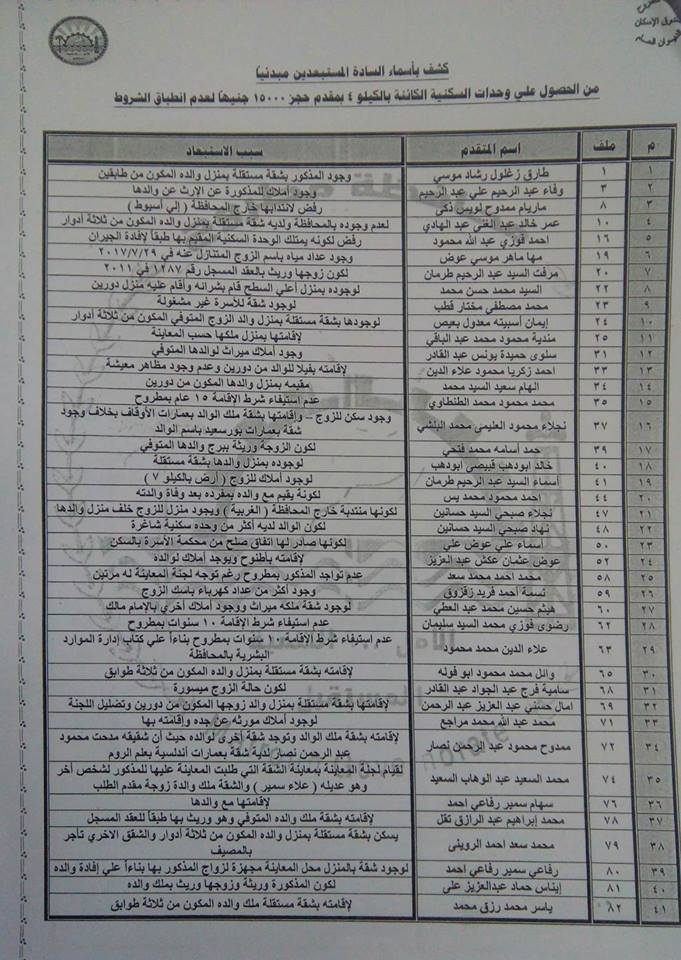 كشف بأسماء السادة المستبعدين مبدئيا
من الحصول علي وحدات السكنية الكائنة بالكيلو ٤ بمقدم حجز ١٥٠٠٠ جنيها لعدم انطباق الشروط
م ملف اسم المتقدم سبب الاستبعاد
١ ١ طارق زغلول رشاد موسي وجود المذكور بشقة مستقلة بمنزل والده المكون من طابقين
٢ ٣ وفاء عبد الرحيم علي عبد الرحيم وجود أملاك للمذكورة عن الإرث عن والدها
٣ ٨ ماريام ممدوح لويس ذكى رفض لانتدابها خارج المحافظة (إلي أسيوط)
٤ ١٠ عمر خالد عبد الغنى عبد الهادي لعدم وجوده بالمحافظة ولديه شقة مستقلة بمنزل والده المكون من ثلاثة أدوار
٥ ١٦ احمد فوزي عبد الله محمود رفض لكونه يمتلك الوحدة السكنية المقيم بها طبقاً لإفادة الجيران
٦ ١٩ مها ماهر موسي عوض وجود عداد مياه باسم الزوج المتنازل عنه في ٢٠١٧/٧/٢٩
٧ ٢٠ مرفت السيد عبد الرحيم طرمان لكون زوجها وريث بالعقد المسجل رقم ١٢٨٧ في ٢٠١١
٨ ٢٢ السيد محمد حسن محمد لوجوده بمنزل أعلي السطح قام بشرائه وأقام عليه منزل دورين
٩ ٢٣ محمد مصطفي مختار قطب لوجود شقة للأسرة غير مشغولة
١٠ ٢٤ إيمان أسبيته معدول بعيص لوجودها بشقة مستقلة بمنزل والد الزوج المتوفي المكون من ثلاثة أدوار
١١ ٢٥ مندية محمود محمد عبد الباقي لإقامتها بمنزل ملكها حسب المعاينة
١٢ ٣١ سلوى حميدة يونس عبد القادر وجود أملاك ميراث لوالدها المتوفي
١٣ ٣٣ احمد زكريا محمود علاء الدين لإقامته بفيلا للوالد من دورين وعدم وجود مظاهر معيشة
١٤ ٣٤ الهام سعيد السيد محمد مقيمه بمنزل والدها المكون من دورين
١٥ ٣٥ محمد محمود محمد الطنطاوي عدم استيفاء شرط الإقامة ١٥ عام بمطروح
١٦ ٣٧ نجلاء محمود العليمى محمد البلشي وجود سكن للزوج – وإقامتها بشقة ملك الوالد بعمارات الأوقاف بخلاف وجود
شقة بعمارات بورسعيد باسم الوالد
١٧ ٣٩ حمد أسامه محمد فتحي لكون الزوجة وريثة ببرج والدها المتوفي
١٨ ٤٠ خالد ابودهب قبيصى ابودهب لوجوده بمنزل والدها بشقة مستقلة
١٩ ٤١ أسماء السيد عبد الرحيم طرمان لوجود أملاك للزوج (أرض بالكيلو ٧)
٢٠ ٤٤ احمد محمود محمد يس لكونة يقيم مع والده بمفرده بعد وفاة والدته
٢١ ٤٧ نجلاء صبحي السيد حسانين لكونها منتدبة خارج المحافظة (الغربية) ويوجد منزل للزوج خلف منزل والدها
٢٢ ٤٨ نهاد صبحي السيد حسانين لكون الوالد لديه أكثر من وحده سكنية شاغرة
٢٣ ٥٠ أسماء علي عوض علي لكونها صادر لها اتفاق صلح من محكمة الأسرة بالسكن
٢٤ ٥٢ عوض عثمان عكش عبد العزيز لإقامته بأطنوح ويوجد أملاك لوالده
٢٥ ٥٨ محمد احمد محمد سعد عدم تواجد المذكور بمطروح رغم توجه لجنة المعاينة له مرتين
٢٦ ٥٩ نسمة أحمد فريد زقزوق وجود أكثر من عداد كهرباء باسك الزوج
٢٧ ٦٠ هيثم حسين محمد عبد العطي لوجود شقة ملكه ميراث ووجود أملاك أخري بالإمام مالك
٢٨ ٦٢ رضوى فوزي محمد السيد سليمان عدم استيفاء شرط الإقامة ١٠ سنوات بمطروح
٢٩ ٦٣ علاء الدين محمد محمود عدم استيفاء شرط الإقامة ١٠ سنوات بمطروح بناءاً علي كتاب إدارة الموارد
البشرية بالمحافظة
٣٠ ٦٥ وائل محمد محمود ابو فوله لإقامته بشقة مستقلة بمنزل والده المكون من ثلاثة طوابق
٣١ ٦٨ سامية فرج عبد الجواد عبد القادر لكون حالة الزوج ميسورة
٣٢ ٦٩ امال حسني عبد العزيز عبد الرحمن لإقامتها بشقة مستقلة بمنزل والد زوجها المكون من دورين وتضليل اللجنة
٣٣ ٧١ محمد عبد الله محمد مراجع لوجود أملاك مورثه عن جده وإقامته بها
٣٤ ٧٢ ممدوح محمود عبد الرحمن نصار لإقامته بشقة ملك الوالد وتوجد شقة أخرى لوالده حيث أن شقيقه مدحت محمود
عبد الرحمن نصار لدية شقة بعمارات أندلسية بعلم الروم
٣٥ ٧٤ محمد السعيد عبد الوهاب السعيد لقيام لجنة المعاينة بمعاينة الشقة التي طلبت المعاينة عليها للمذكور لشخص أخر
وهو عديله (علاء سمير) والشقة ملك والدة زوجة مقدم الطلب
٣٦ ٧٦ سهام سمير رفاعي احمد لإقامتها مع والدها
٣٧ ٧٨ محمد إبراهيم عبد الرازق تقل لإقامته بشقة ملك والده المتوفي وهو وريث بها طبقاً للعقد المسجل
٣٨ ٧٩ محمد سعد احمد الروبنى يسكن بشقة مستقلة بمنزل والده المكون من ثلاثة أدوار والشقق الاخري تأجر
بالمصيف
٣٩ ٨٠ رفاعي سمير رفاعي احمد لوجود شقة بالمنزل محل المعاينة مجهزة لزواج المذكور بها بناءاً علي إفادة والده
٤٠ ٨١ إيناس حماد عبدالعزيز على لكون المذكورة وريثة وزوجها وريث بملك والده
٤١ ٨٢ ياسر محمد رزق محمد لإقامته بشقة مستقلة ملك والده المكون من ثلاثة طوابق